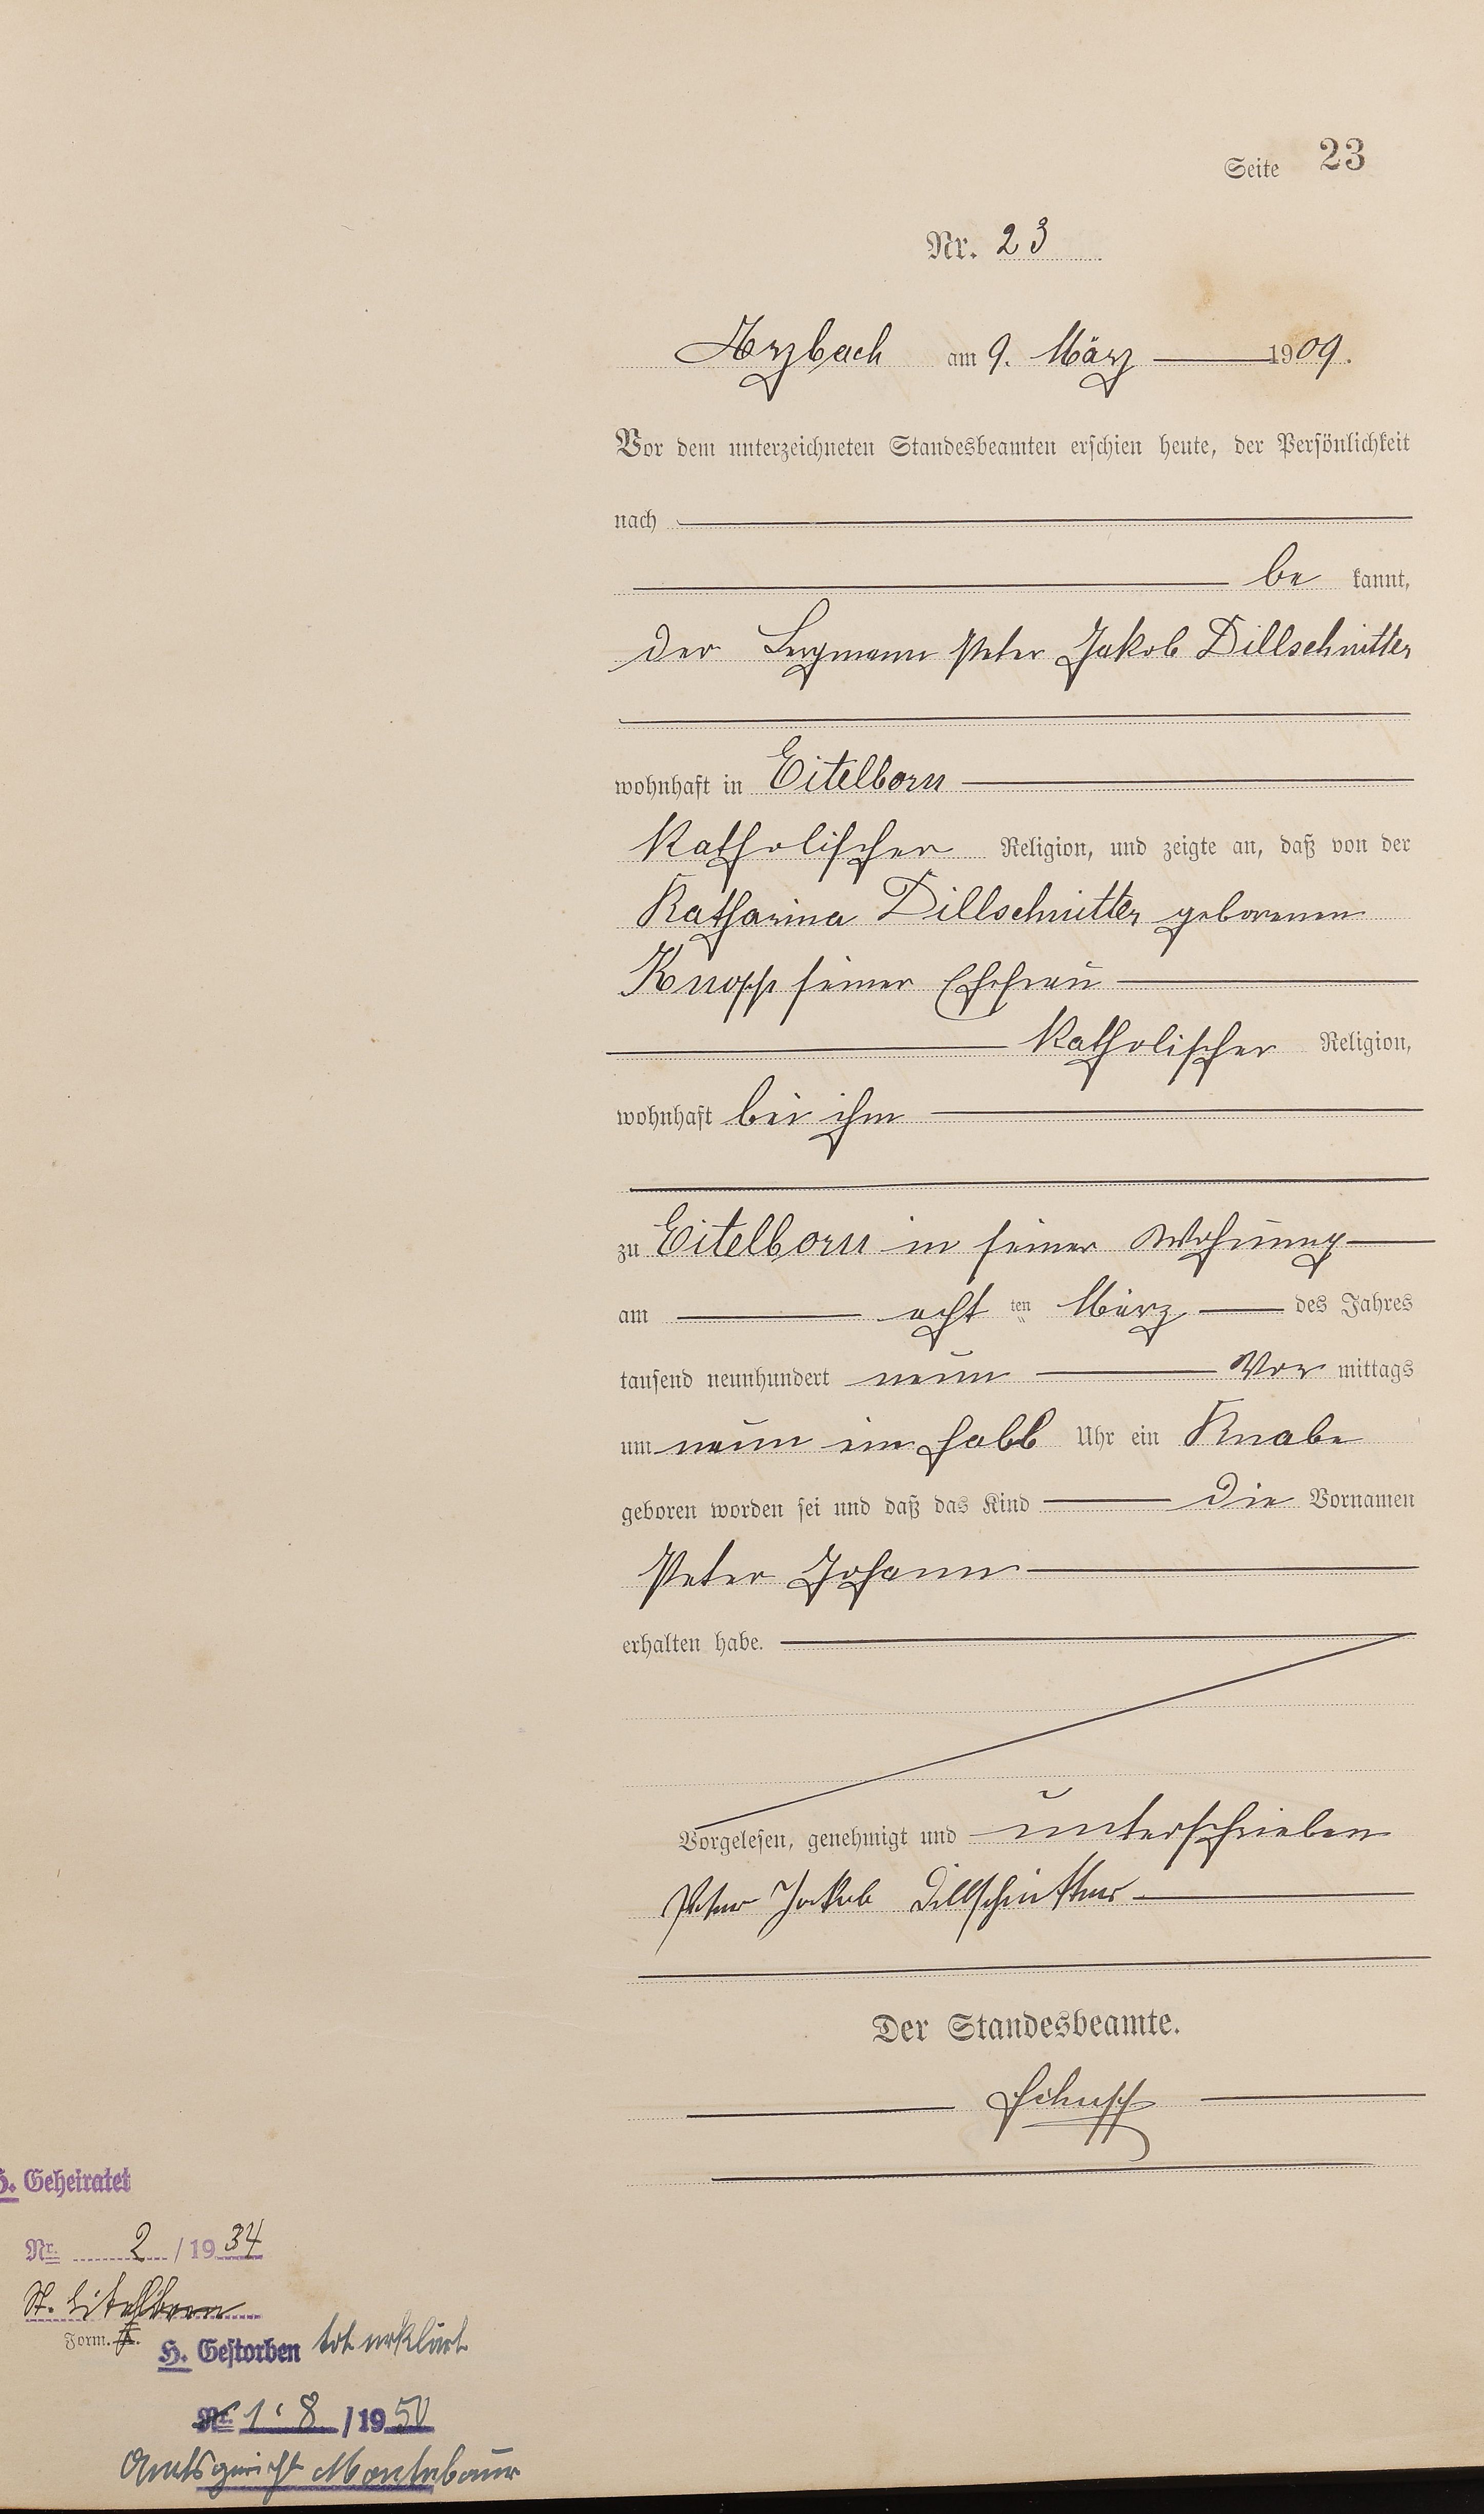 Seite 23
Nr. 23
Arzbach am 9. März 1909.
Vor dem unterzeichneten Standesbeamten erschien heute, der Persönlichkeit
nach
be kannt,
der Bergmann Peter Jakob Dillschnitter
wohnhaft in Eitelborn
katholischer Religion, und zeigte an, daß von der
Katharina Dillschnitter geborenen
Knopp seiner Ehefrau
katholischer Religion,
wohnhaft bei ihm
zu Eitelborn in seiner Wohnung
am acht ten März des Jahres
tausend neunhundert neun Vor mittags
um neun ein halb Uhr ein Knabe
geboren worden sei und daß das Kind die Vornamen
Peter Johann
erhalten habe.
Vorgelesen, genehmigt und unterschrieben
Peter Jakob Dillschnitter
Der Standesbeamte.
H. Geheiratet
Nr. 2 / 1934
St. Eitelborn
Form.
H. Gestorben tot erklärt
Nr. 1. 8 / 1950
Amtsgericht Montabaur